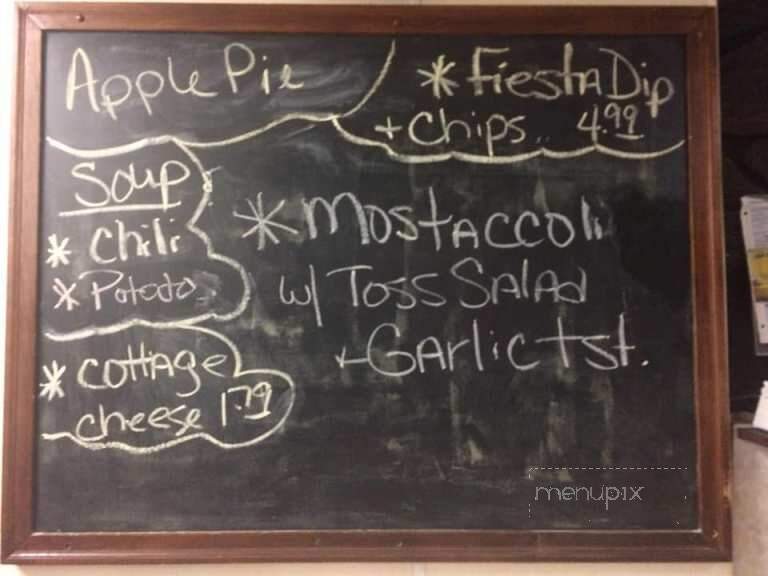 Apple Pie
* Fiesta Dip
+ Chips.. 4.99
Soup
* Chili
* Potato..
* Cottage
cheese 1.79
* Mostaccoli
w/ Toss Salad
+ Garlic tst.
menupix